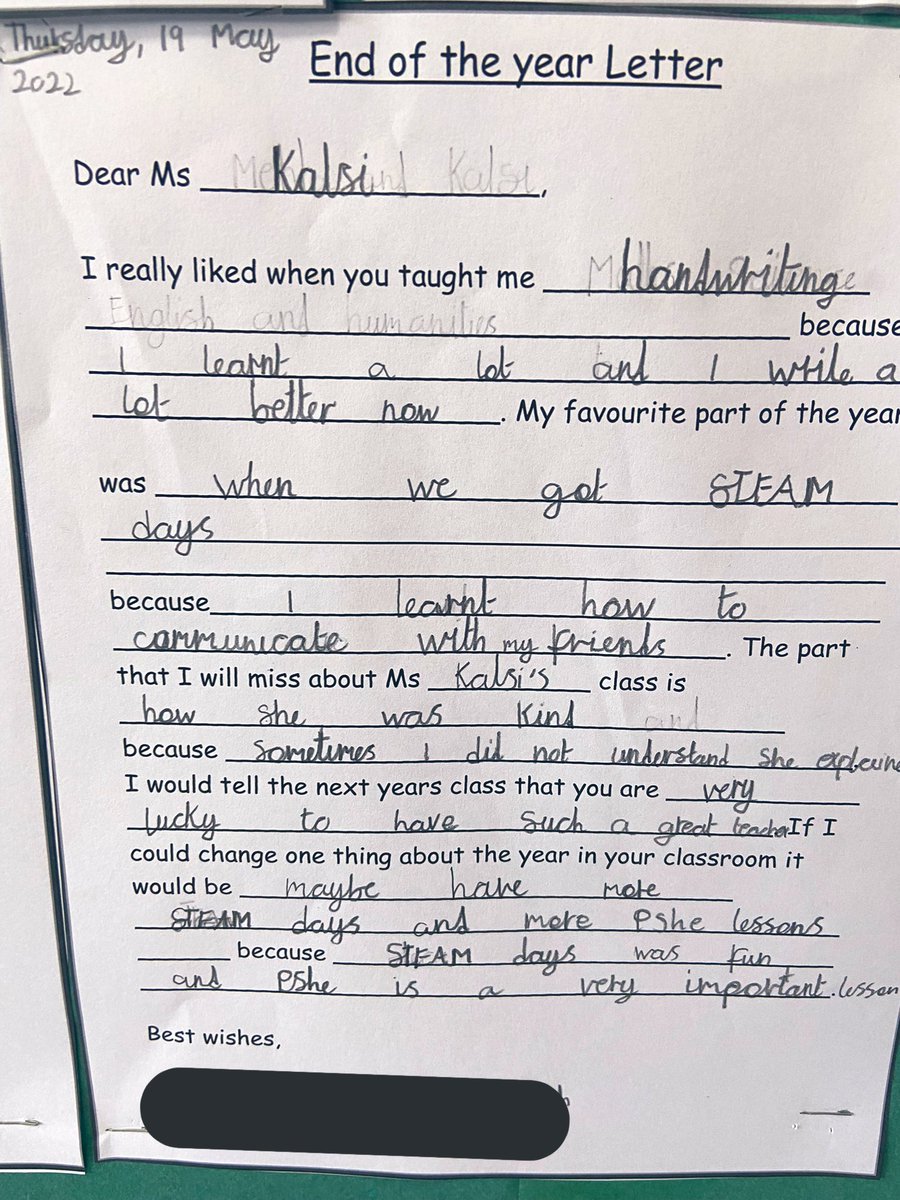 Thursday, 19 May
2022
End of the year Letter
Dear Ms Kalsi,
I really liked when you taught me handwriting
English and humanities because
I learnt a lot and I write a
lot better now. My favourite part of the year
was when we got STEAM
days
because I learnt how to
communicate with my friends. The part
that I will miss about Ms Kalsi's class is
how she was kind and
because sometimes I did not understand she explaine
I would tell the next years class that you are very
lucky to have such a great teacher If I
could change one thing about the year in your classroom it
would be maybe have more
STEAM days and more Pshe lessons
because STEAM days was fun
and Pshe is a very important.lesson
Best wishes,